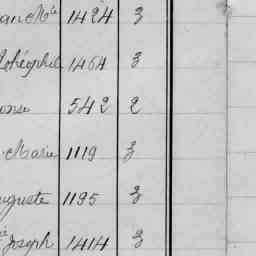 an Mie 1424 3
Théophile 1464 3
onse 542 2
Marie 1119 3
uguste 1195 3
Joseph 1414 3